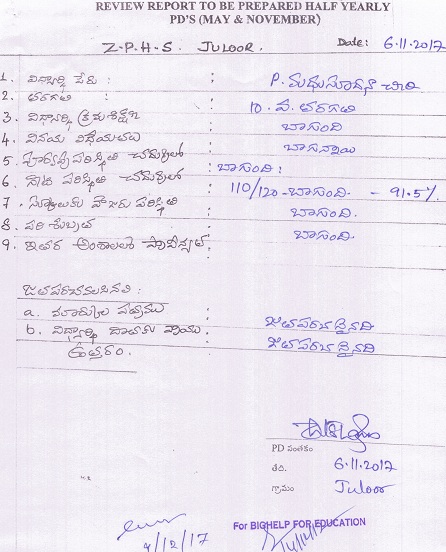 REVIEW REPORT TO BE PREPARED HALF YEARLY
PD'S (MAY & NOVEMBER)
Z-P-H-S. JULOOR.
Date: 6.11.2017
1. విద్యార్థి పేరు : P. మధుసూధనా చారి
2. తరగతి : 10. వ. తరగతి
3. విద్యార్థి క్రమశిక్షణ : బాగుంది
4. వినయ విధేయతలు : బాగున్నాయి
5. పూర్వపు పరిస్థితి చదువులో : బాగుంది :
6. నేటి పరిస్థితి చదువులో : 110/120 - బాగుంది. - 91.5%
7. స్కూలుకు హాజరు పరిస్థితి : బాగుంది.
8. పరిశుభ్రత : బాగుంది.
9. ఇతర అంశాలలో
జతపరచవలసినవి :
a. మార్కుల పత్రము : జతపరచ బడినది
b. విద్యార్థి దాతకు వ్రాయు : జతపరచ బడినది
ఉత్తరం.
PD సంతకం
తేది. 6.11.2017
గ్రామం Juloor
For BIGHELP FOR EDUCATION
4/12/17